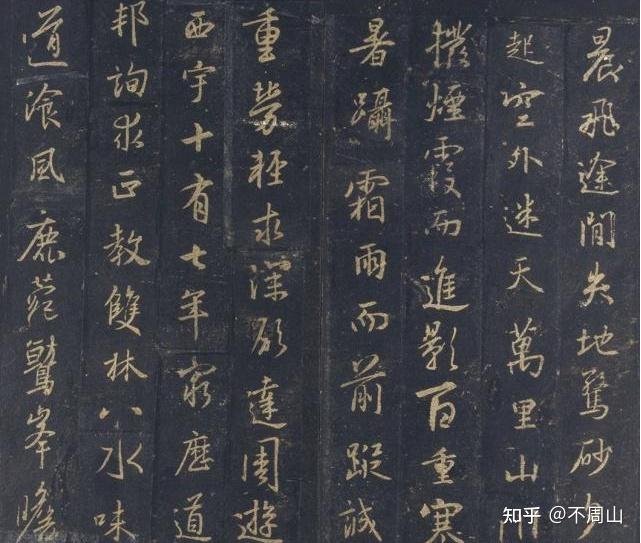 晨飛途間失地驚砂夕
起空外迷天萬里山川
撥煙霞而進影百重寒
暑躡霜雨而前蹤誠
重勞輕求深願達周遊
西宇十有七年窮歷道
邦詢求正教雙林八水味
道飡風鹿菀鷲峯瞻
知乎 @不周山